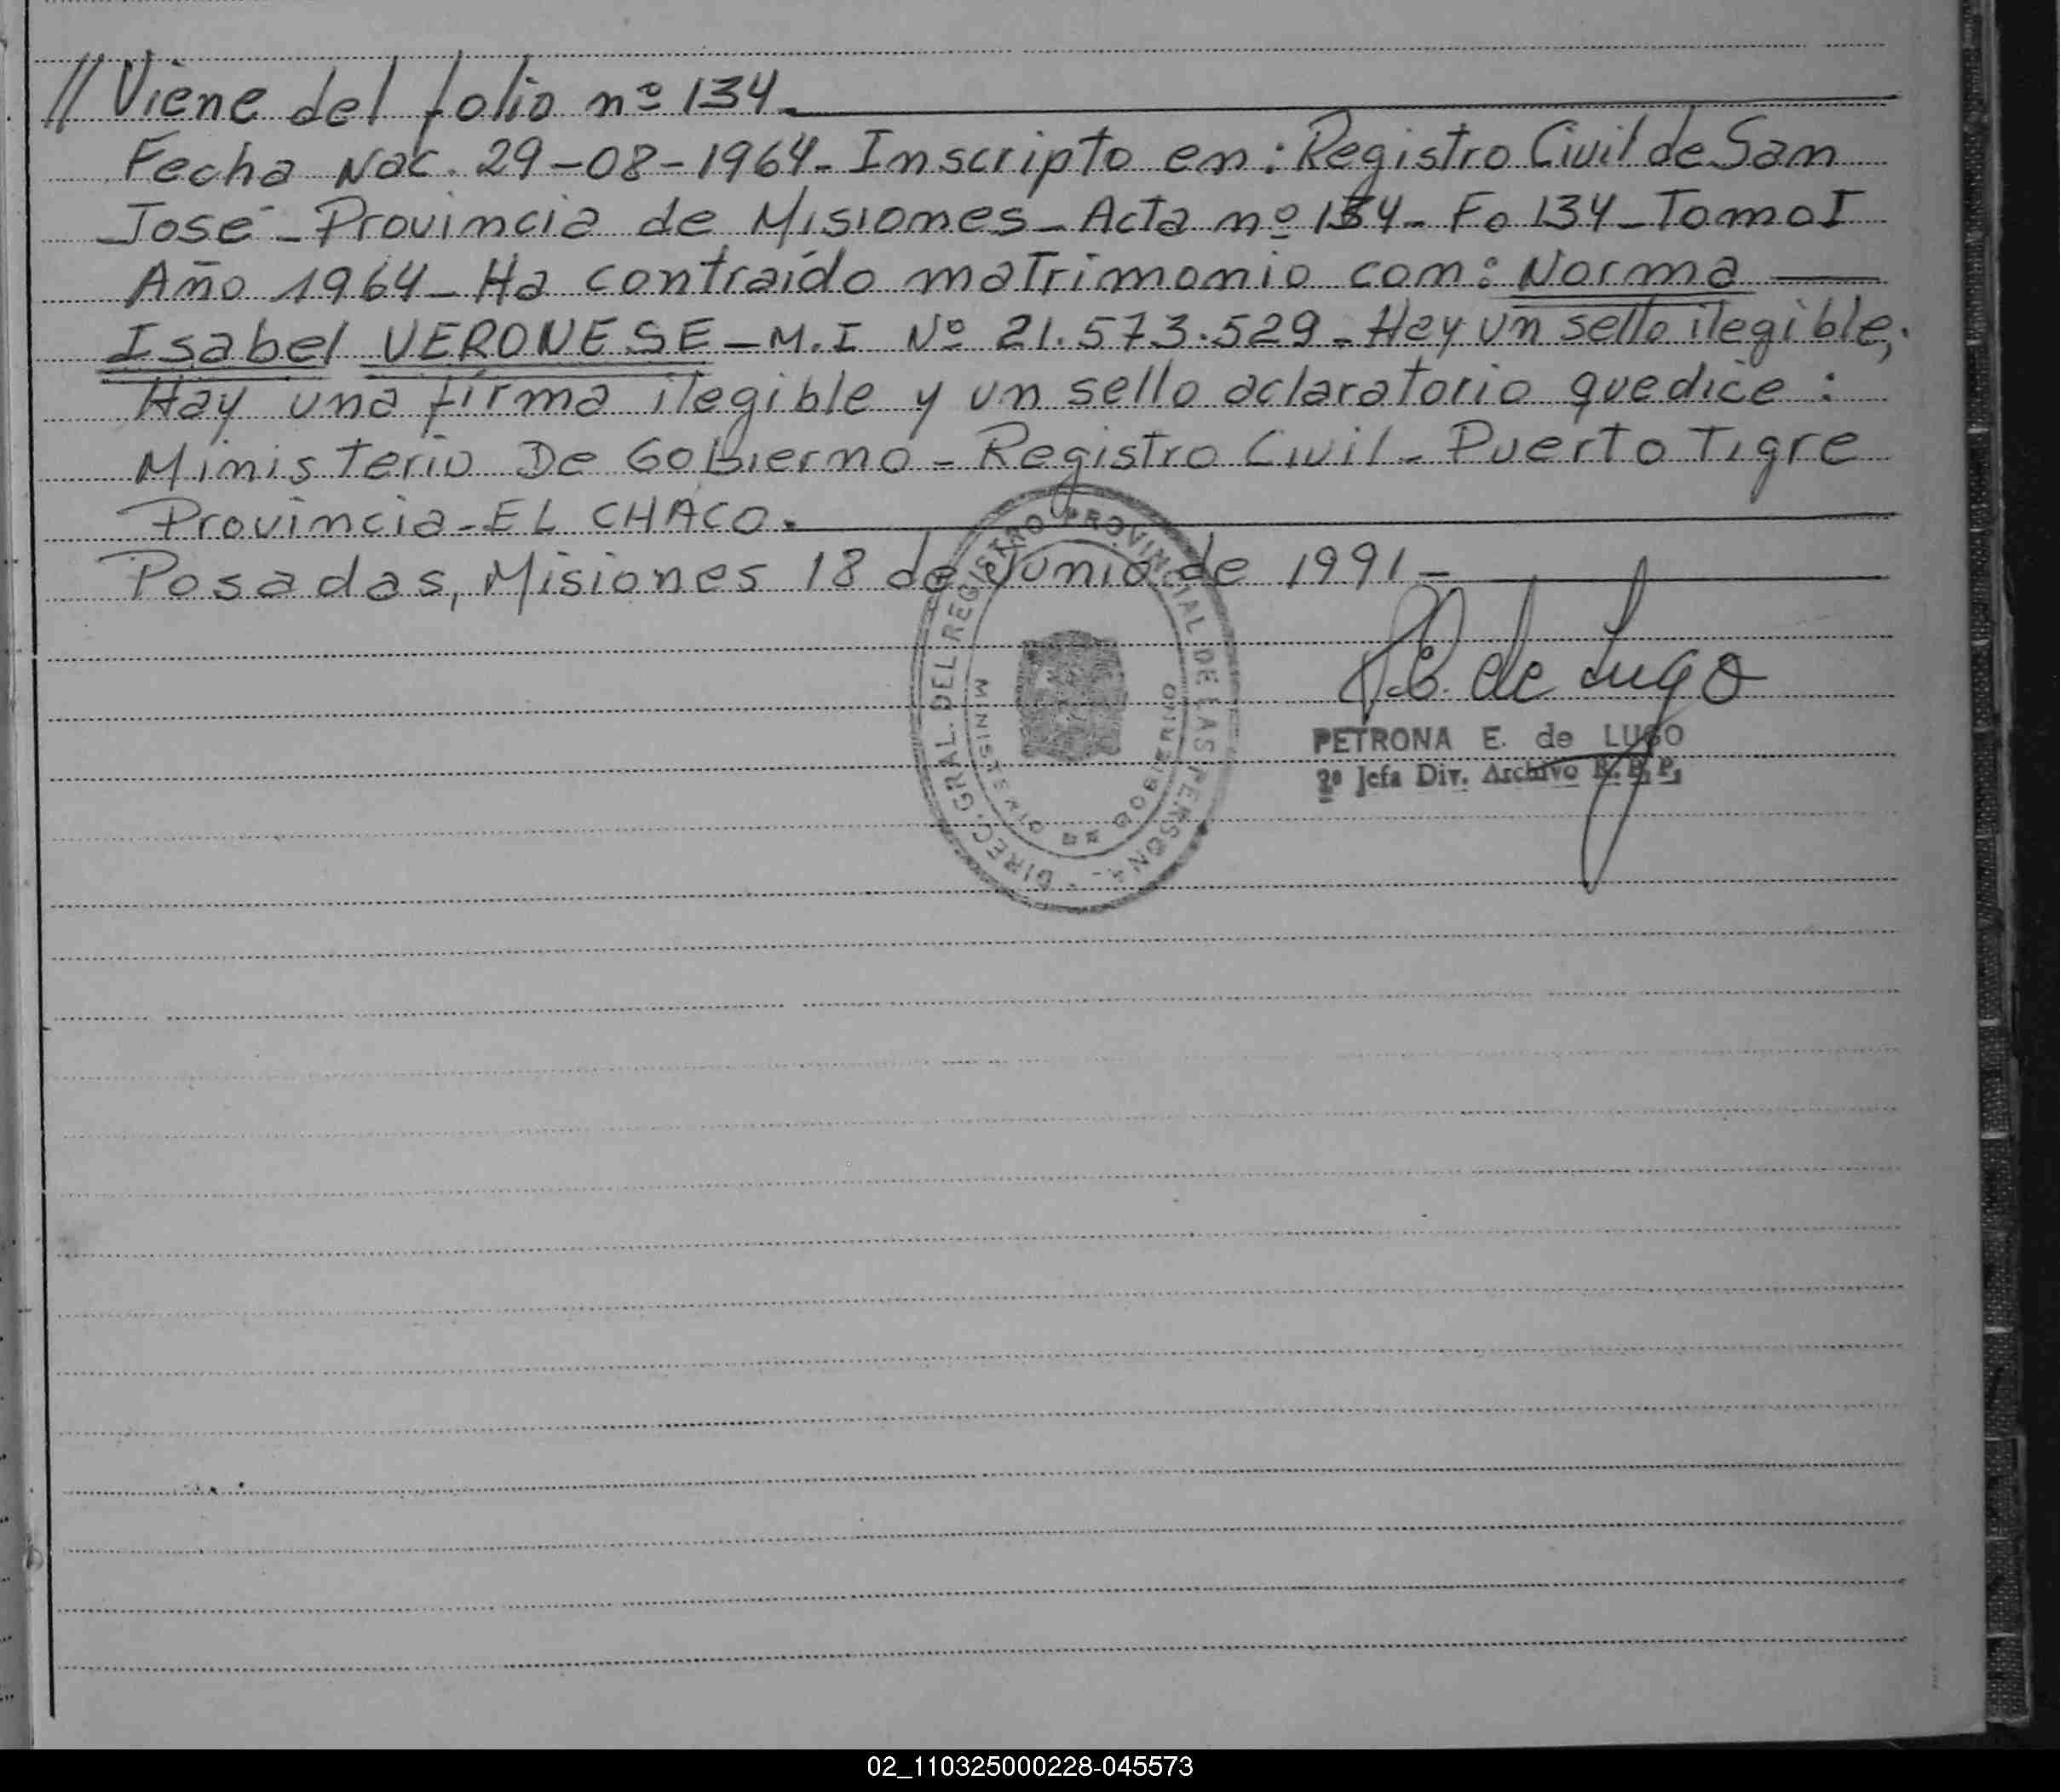 // Viene del folio nº 134.
Fecha Nac. 29-08-1964- Inscripto en: Registro Civil de San
José - Provincia de Misiones - Acta nº 134- Fo 134 - Tomo I
Año 1964 - Ha contraído matrimonio con: Norma
Isabel VERONESE - M.I Nº 21.573.529 - Hay un sello ilegible;
Hay una firma ilegible y un sello aclaratorio que dice:
Ministerio De Gobierno - Registro Civil - Puerto Tigre
Provincia - EL CHACO.
Posadas, Misiones 18 de Junio de 1991 -
DIREC. GRAL. DEL REGISTRO PROVINCIAL DE LAS PERSONA
MINISTERIO GOBIERNO
P.E. de Lugo
PETRONA E. de LUGO
2ª Jefa Div. Archivo R. P. P.
02_110325000228-045573